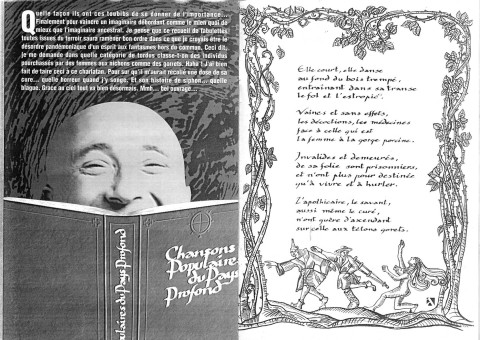 Quelle façon ils ont ces toubibs de se donner de l'importance...
Finalement pour vaincre un imaginaire débordant comme le mien quoi de
mieux que l'imaginaire ancestral. Je pense que ce recueil de fabliettes
toutes issues du terroir saura ramener bon ordre dans ce que je croyais être le
désordre pandémoniaque d'un esprit aux fantasmes hors du commun. Ceci dit,
je me demande dans quelle catégorie de tordus classe-t-on des individus
pourchassés par des femmes aux nichons comme des gorets. Haha ! J'ai bien
fait de taire ceci à ce charlatan. Pour sûr qu'il m'aurait recalé une dose de sa
cure... quelle horreur quand j'y songe. Et son histoire de siphon... quelle
blague. Grâce au ciel tout va bien désormais. Mmh... bel ouvrage...
ulaires du Pays Profond
Chansons
Populaires
du Pays
Profond
Elle court, elle danse
au fond du bois trempé,
entraînant dans sa transe
le fol et l'estropié.
Vaines et sans effets,
les décoctions, les médecines
face à celle qui est
la femme à la gorge porcine.
Invalides et demeurés,
de sa folie sont prisonniers,
et n'ont plus pour destinée
qu'à vivre et à hurler.
L'apothicaire, le savant,
aussi même le curé,
n'ont guère d'ascendant
sur celle aux tétons gorets.